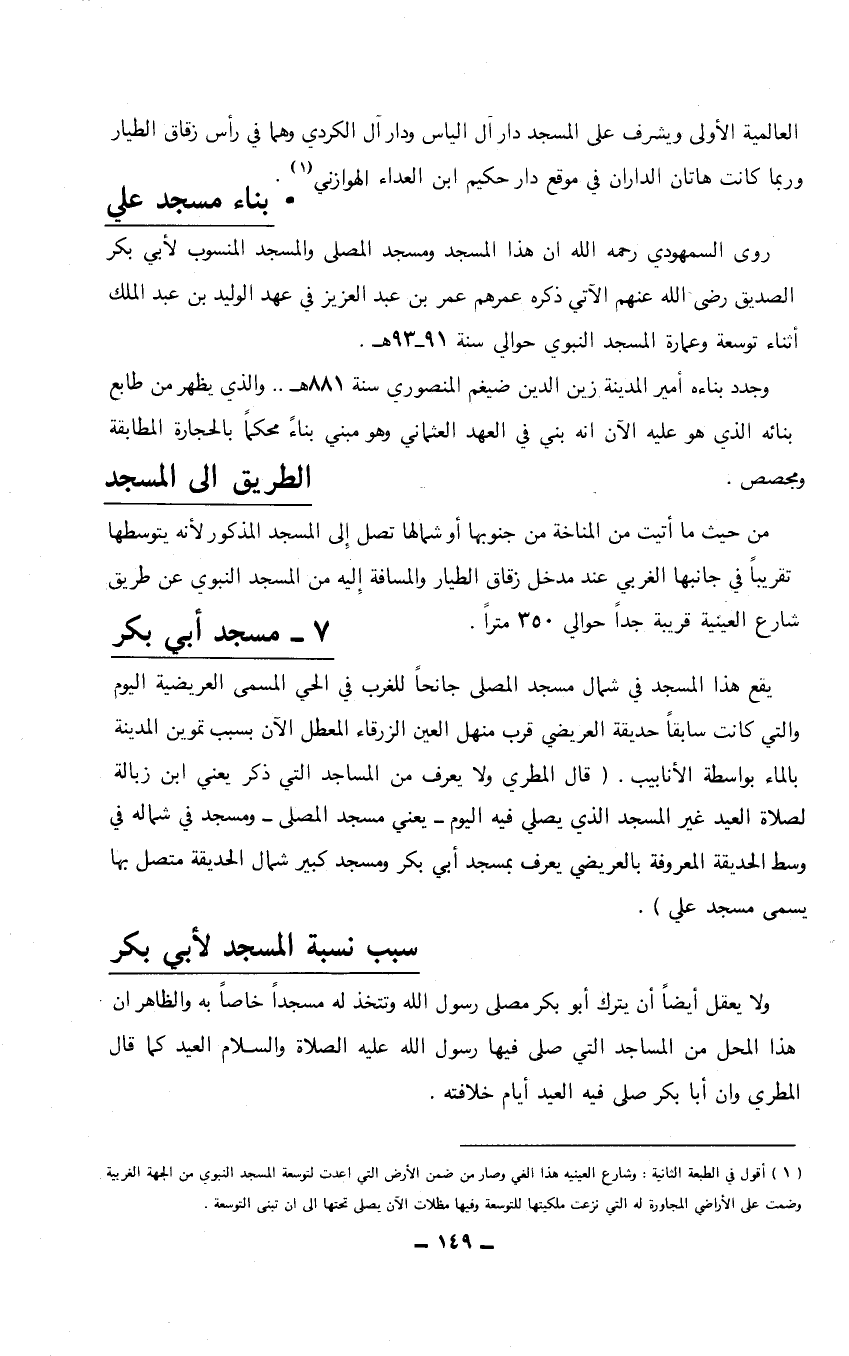 العالمية الأولى ويشرف على المسجد دار آل الياس ودار آل الكردي وهما في رأس زقاق الطيار
وربما كانت هاتان الداران في موقع دار حكيم ابن العداء الهوازني(١) .
• بناء مسجد علي
روى السمهودي رحمه الله ان هذا المسجد ومسجد المصلى والمسجد المنسوب لأبي بكر
الصديق رضى الله عنهم الآتي ذكره عمرهم عمر بن عبد العزيز في عهد الوليد بن عبد الملك
أثناء توسعة وعمارة المسجد النبوي حوالي سنة ٩١ـ٩٣هـ .
وجدد بناءه أمير المدينة زين الدين ضيغم المنصوري سنة ٨٨١هـ .. والذي يظهر من طابع
بنائه الذي هو عليه الآن انه بني في العهد العثماني وهو مبني بناءً محكماً بالحجارة المطابقة
ومجصص .
الطريق الى المسجد
من حيث ما أتيت من المناخة من جنوبها أو شمالها تصل إلى المسجد المذكور لأنه يتوسطها
تقريباً في جانبها الغربي عند مدخل زقاق الطيار والمسافة إليه من المسجد النبوي عن طريق
شارع العينية قريبة جداً حوالي ٣٥٠ متراً .
٧ ـ مسجد أبي بكر
يقع هذا المسجد في شمال مسجد المصلى جانحاً للغرب في الحي المسمى العريضية اليوم
والتي كانت سابقاً حديقة العريضي قرب منهل العين الزرقاء المعطل الآن بسبب تموين المدينة
بالماء بواسطة الأنابيب . ( قال المطري ولا يعرف من المساجد التي ذكر يعني ابن زبالة
لصلاة العيد غير المسجد الذي يصلي فيه اليوم ـ يعني مسجد المصلى ـ ومسجد في شماله في
وسط الحديقة المعروفة بالعريضي يعرف بمسجد أبي بكر ومسجد كبير شمال الحديقة متصل بها
يسمى مسجد علي ) .
سبب نسبة المسجد لأبي بكر
ولا يعقل أيضاً أن يترك أبو بكر مصلى رسول الله وتتخذ له مسجداً خاصاً به والظاهر ان
هذا المحل من المساجد التي صلى فيها رسول الله عليه الصلاة والسلام العيد كما قال
المطري وان أبا بكر صلى فيه العيد أيام خلافته .
( ١ ) أقول في الطبعة الثانية : وشارع العينيه هذا الغي وصار من ضمن الأرض التي اعدت لتوسعة المسجد النبوي من الجهة الغربية
وضمت على الأراضي المجاورة له التي نزعت ملكيتها للتوسعة وفيها مظلات الآن يصلى تحتها الى ان تبنى التوسعة .
ـ ١٤٩ ـ